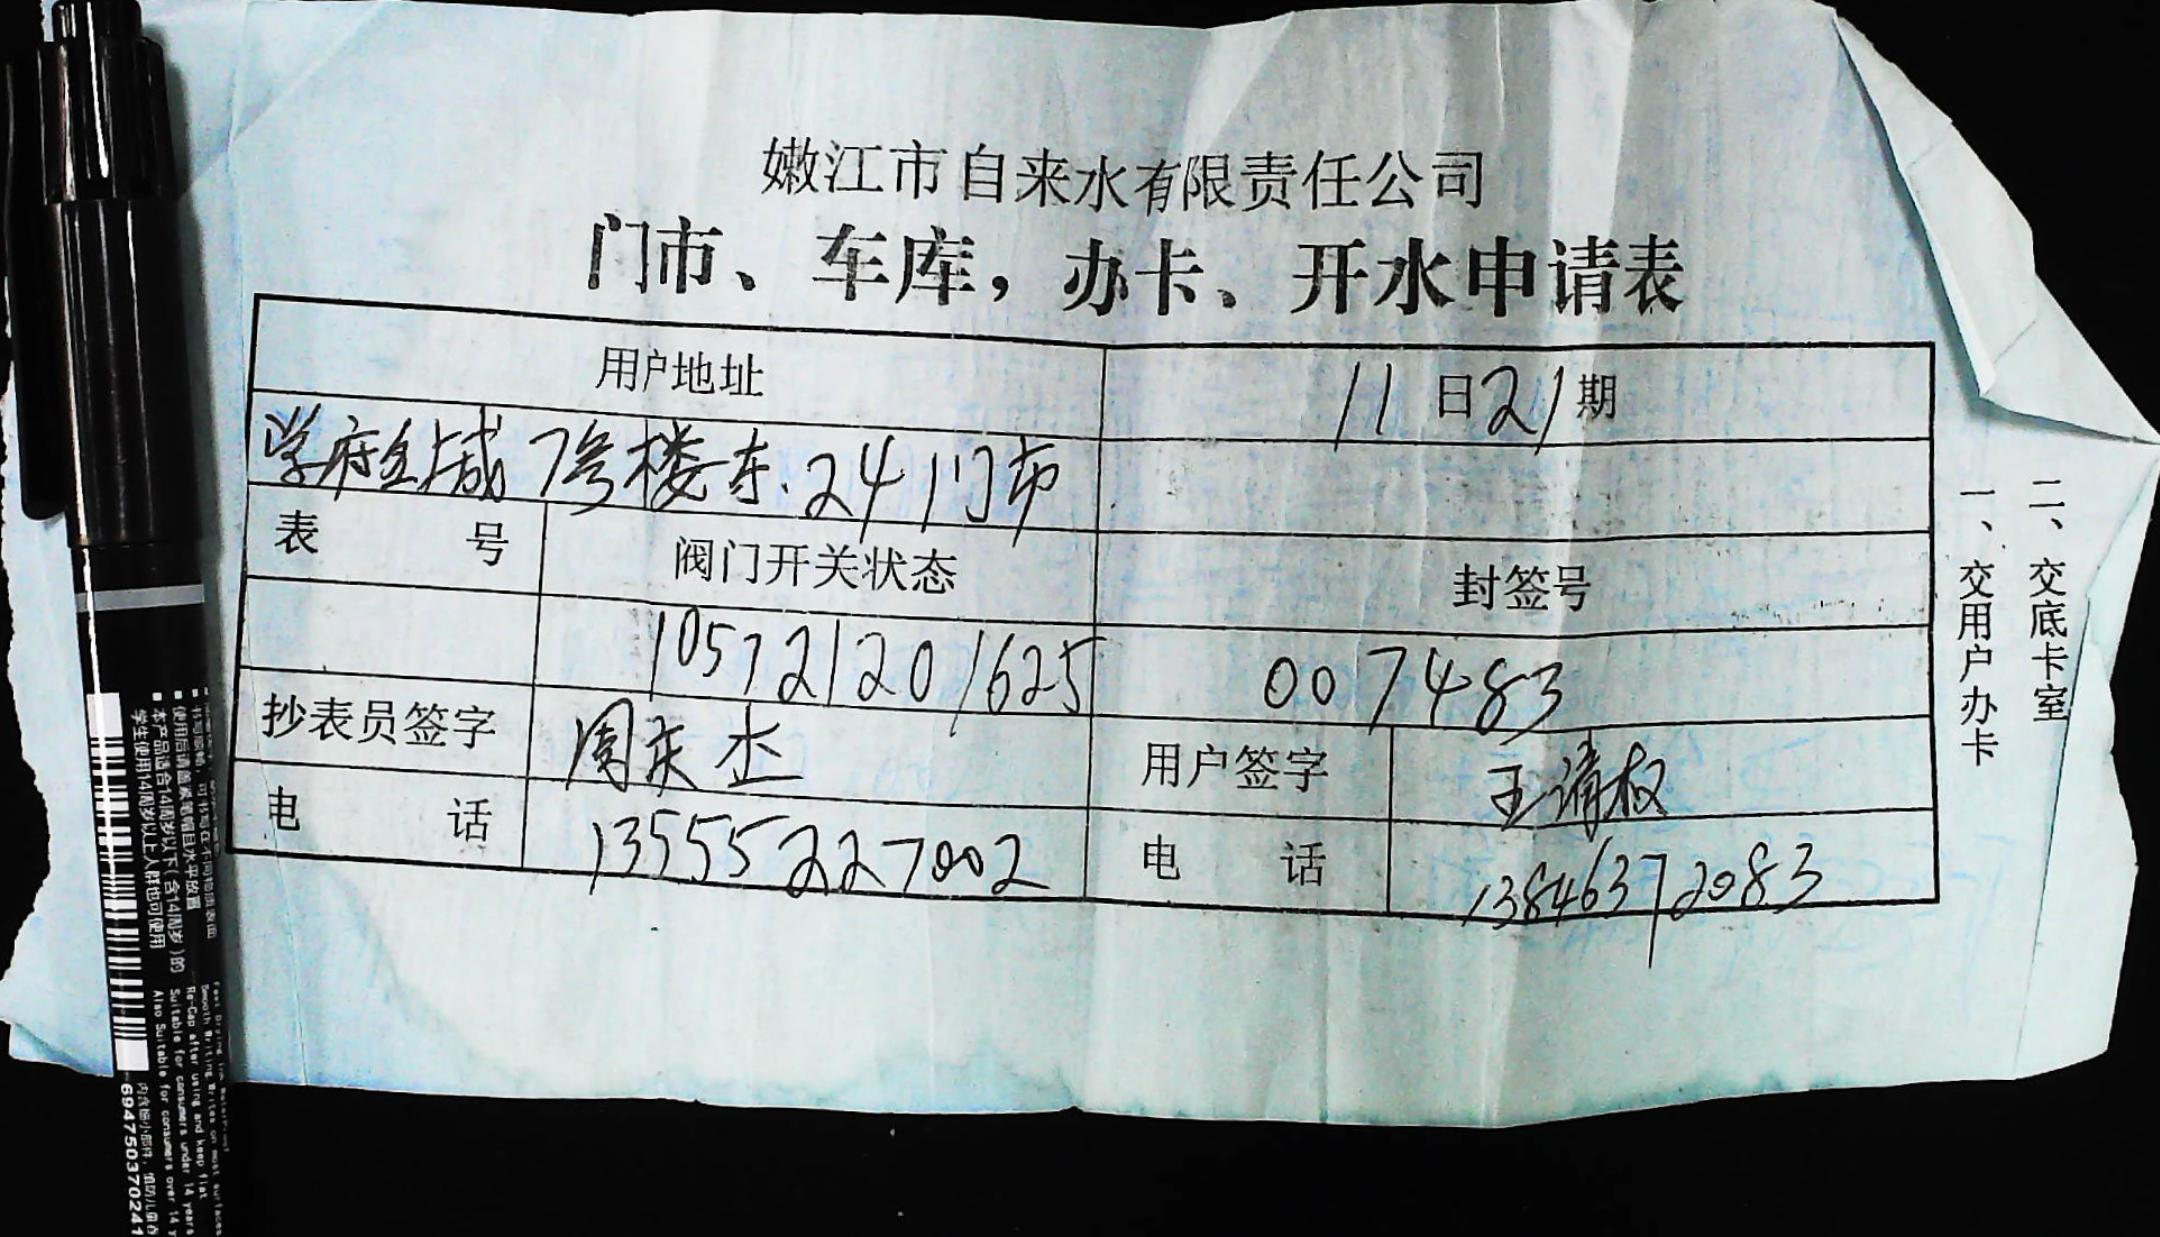 嫩江市自来水有限责任公司
门市、车库，办卡、开水申请表
用户地址
11日21期
学府全城7号楼东.24门市
表 号
阀门开关状态
封签号
105721201625
007483
抄表员签字
周庆丕
用户签字
王清权
电 话
13555227002
电 话
13846372083
二、交底卡室
一、交用户办卡
使用后请盖紧笔帽且水平放置
本产品适合14周岁以下(含14周岁)的
学生使用14周岁以上人群也可使用
Smooth Writing Writes on most surfaces
Re-Cap after using and keep flat
Suitable for consumers under 14 years
Also Suitable for consumers over 14 y
694750370241